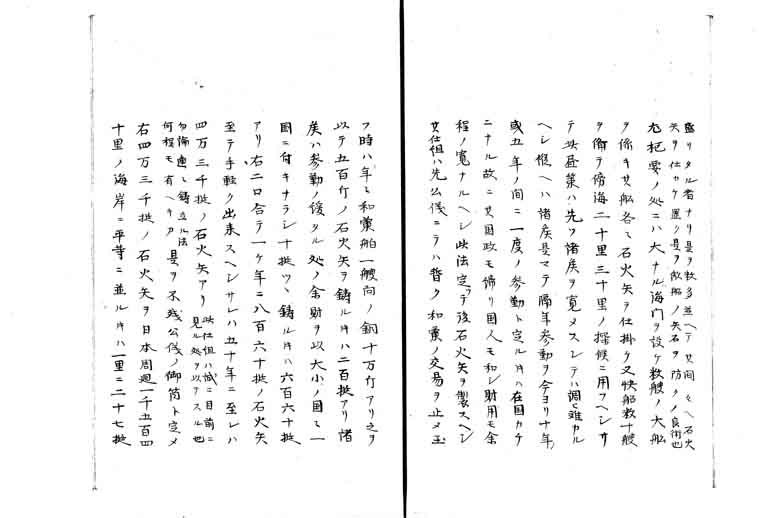 盛リタル者ナリ是ヲ数多並ヘテ其間々ヘ石火
矢ヲ仕カケ置ク是ヲ敵船ノ矢石ヲ防クノ良術也
尤肥要ノ処ニハ大ナル海門ヲ設ケ数艘ノ大船
ヲ係キ其船各々石火矢ヲ仕掛ケ又快船数十艘
ヲ備テ傍海二十里三十里ノ探候ニ用フヘシサ
テ此基策ハ先ツ諸矦ヲ寛メスンテハ調ヒ難カル
ヘシ候ヘハ諸矦是マテ隔年参勤ヲ今ヨリ十年
或五年ノ間ニ一度ノ参勤ト定ルキハ在国カチ
ニナル故ニ其国政モ帰リ国人モ和シ財用モ余
程ノ寛ナルヘシ此法定テ後石火矢ヲ製スヘシ
其仕組ハ先公儀ニテハ暫ク和蘭ノ交易ヲ止メ玉
フ時ハ年々和蘭船一艘向ノ銅十万斤アリ之ヲ
以テ五百斤ノ石火矢ヲ鋳ルキハ二百挺アリ諸
矦ハ参勤ノ後タル処ノ余財ヲ以大小ノ国々一
国ニ付キナラシ十挺ツヽ鋳ルキハ六百六十挺
アリ右二口合テ一ケ年ニ八百六十挺ノ石火矢
至テ手軽ク出来スヘシサレハ五十年ニ至レハ
四万三千挺ノ石火矢アリ此仕組ハ試ニ目前ニ見ル処ヲ以テスル也
勿論速ニ鋳立ル法何程モ有ヘケリ是ヲ不残公儀ノ御筒ト定メ
右四万三千挺ノ石火矢ヲ日本周廻一千五百四
十里ノ海岸ニ平等ニ並ルキハ一里ニ二十七挺